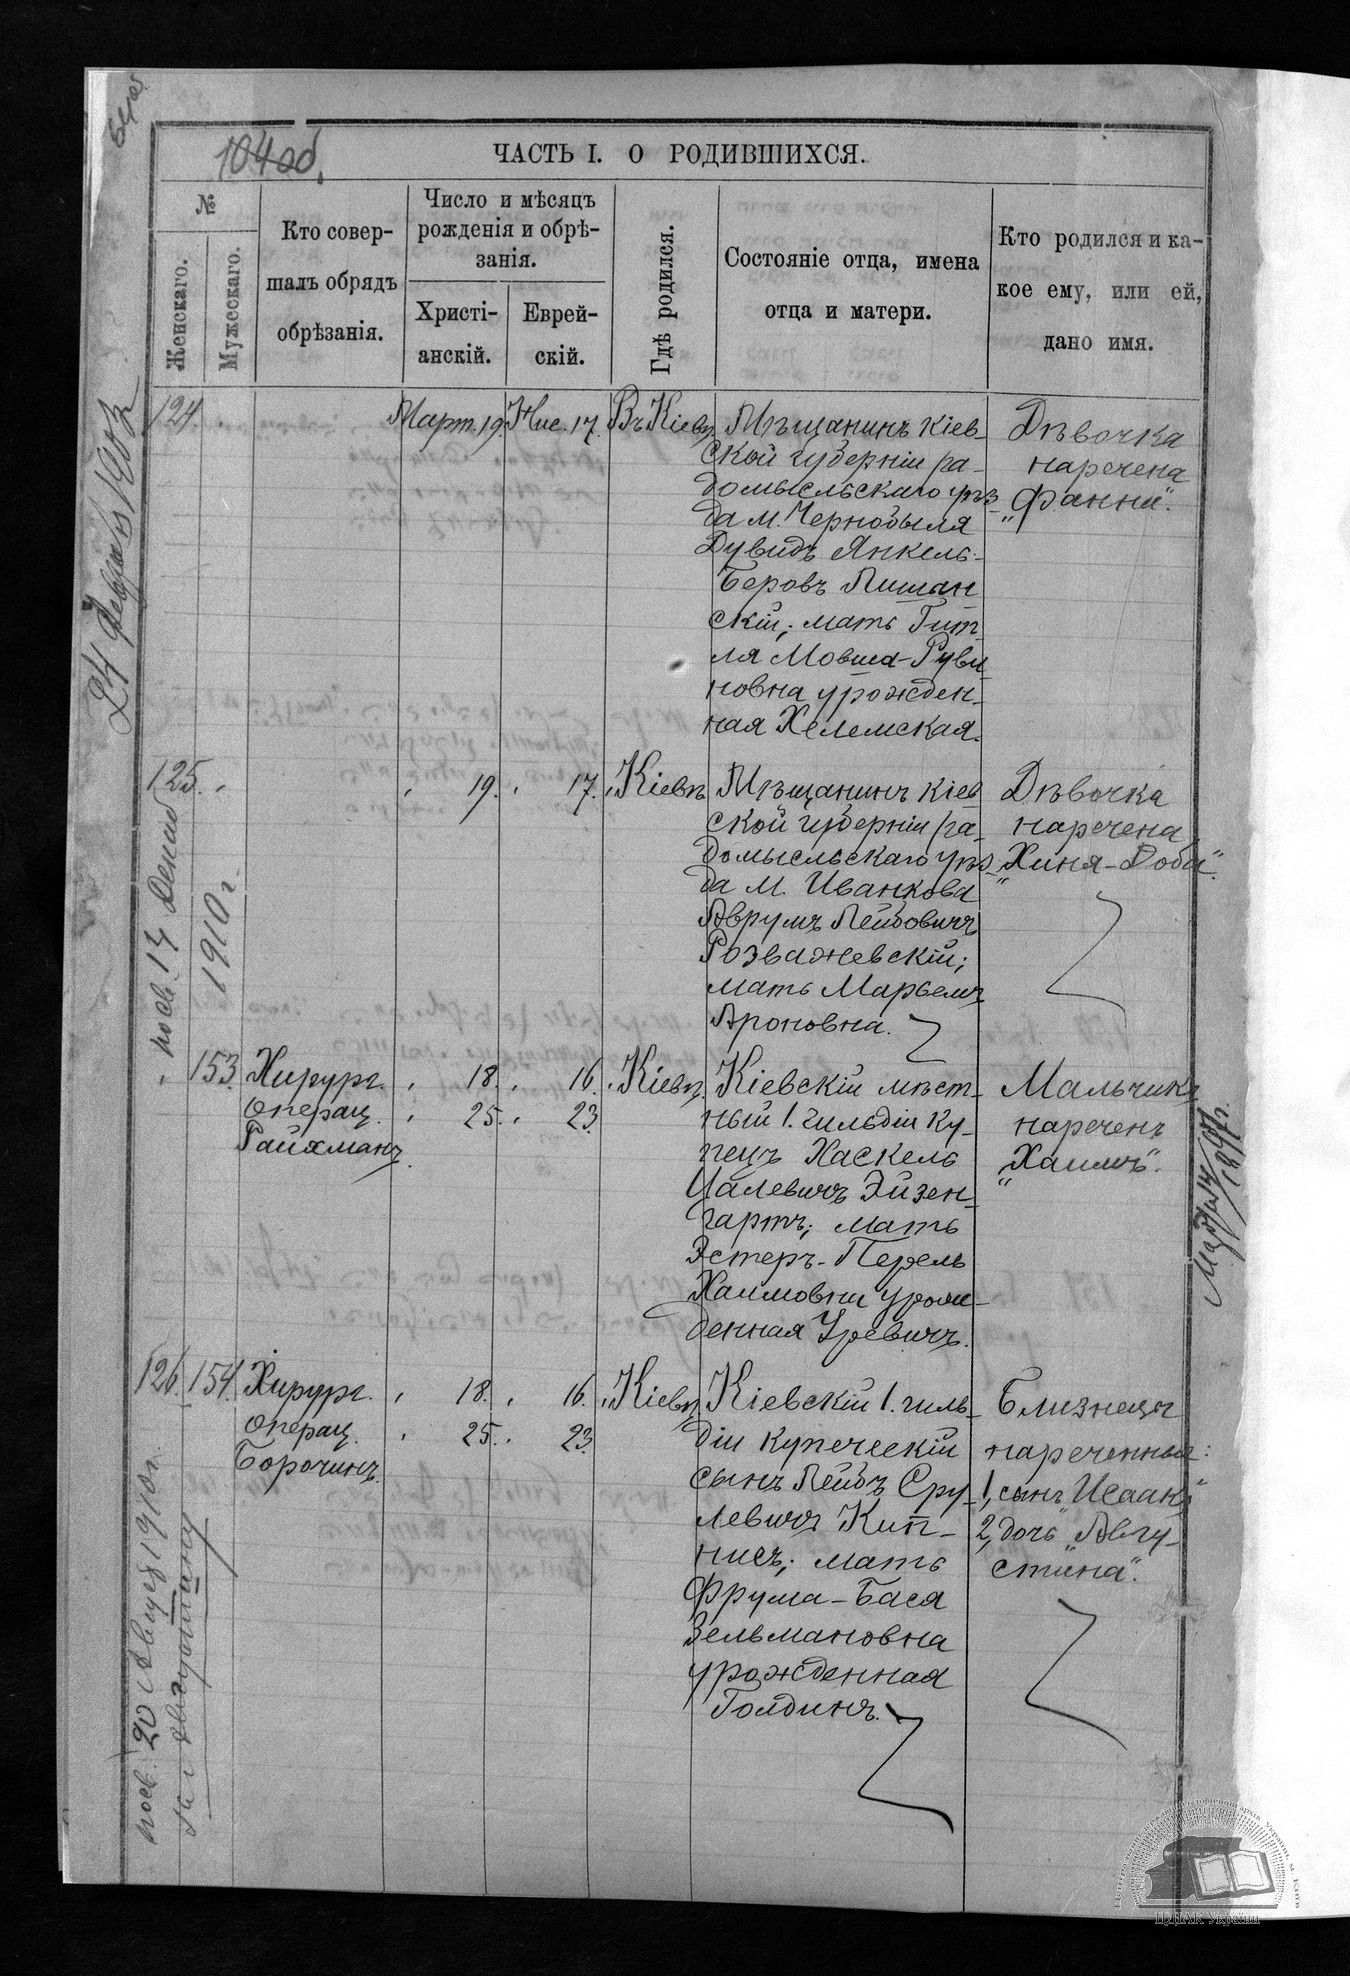 104об.
ЧАСТЬ I. О РОДИВШИХСЯ.
№
Женскаго.
Мужескаго.
Кто совер-
шалъ обрядъ
обрѣзанія.
Число и мѣсяцъ
рожденія и обрѣ-
занія.
Христі-
анскій.
Еврей-
скій.
Гдѣ родился.
Состояніе отца, имена
отца и матери.
Кто родился и ка-
кое ему, или ей,
дано имя.
124.
Март. 19.
Нис. 17.
Въ Кіевѣ.
Мѣщанинъ Кіев-
ской губерніи ра-
домысльскаго уѣз-
да м. Чернобыля
Дувидъ Янкель-
Беровъ Лишан
скій; мать Гит-
ля Мовша-Руви
новна урожден-
ная Хелемская.
Дѣвочка
наречена
„Фанни".
24 Февраля 1902
125.
19.
17.
Кіевѣ
Мѣщанинъ Кіев
ской губерніи ра-
домысльскаго уѣз-
да м. Иванкова
Аврумъ Лейбовичъ
Розважевскій;
мать Марьемъ
Ароновна.
Дѣвочка
наречена
„Хиня-Доба".
1910 г.
153.
Хирург.
операц.
Райхманъ.
18.
25.
16.
23.
Кіевѣ.
Кіевскій мѣст-
ный 1. гильдіи ку-
пецъ Хаскель
Цалевичъ Эйзен-
гартъ; мать
Эстеръ-Перель
Хаимовна урож-
денная Уревичъ.
Мальчикъ
нареченъ
„Хаимъ".
1897 г.
126.
154.
Хирург.
операц.
Борочинъ.
18.
25.
16.
23.
Кіевѣ
Кіевскій 1. гиль-
діи купеческій
сынъ Лейбъ Сру-
левичъ Кип-
нисъ; мать
Фрума-Бася
Зельмановна
урожденная
Голдинъ.
Близнецы
нареченныя:
1, сынъ „Исаакъ"
2, дочь „Авгу-
стина".
1910 г.
ЦДІАК України